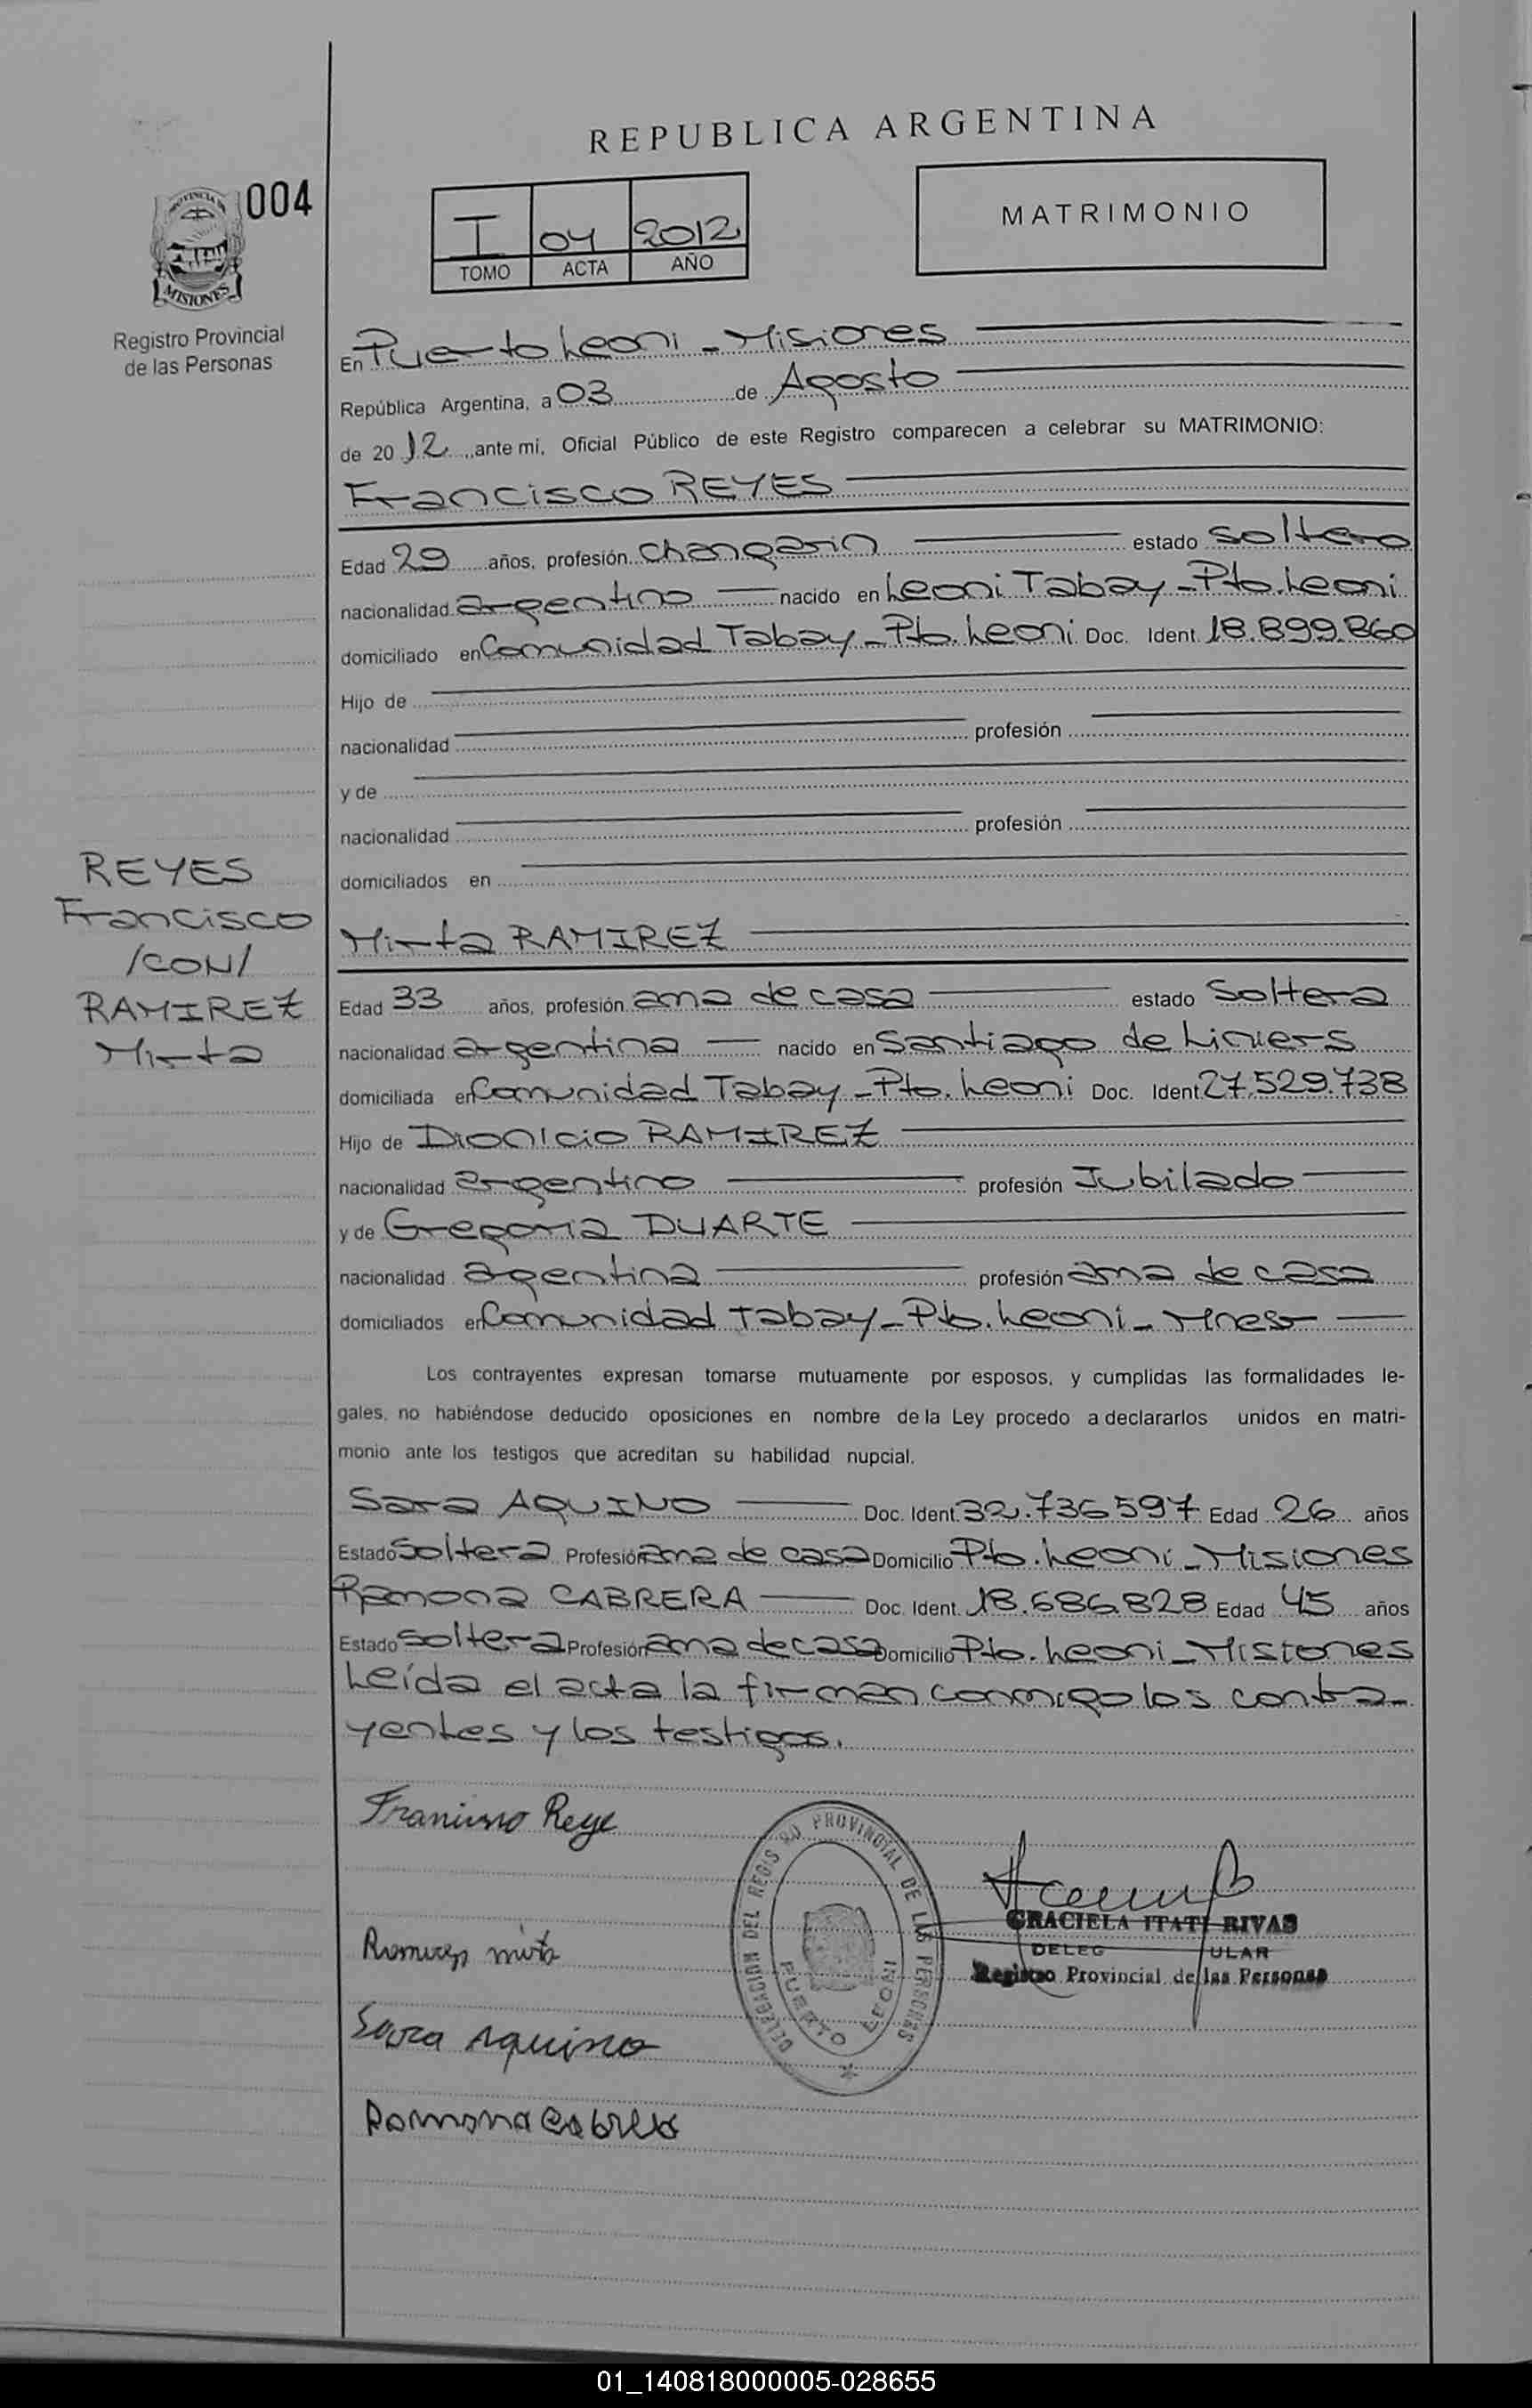 REPUBLICA ARGENTINA
004
PROVINCIA DE
MISIONES
Registro Provincial
de las Personas
I 04 2012
TOMO ACTA AÑO
MATRIMONIO
En Puerto Leoni - Misiones
República Argentina, a 03 de Agosto
de 2012, ante mi, Oficial Público de este Registro comparecen a celebrar su MATRIMONIO:
Francisco REYES
Edad 29 años, profesión changarin estado soltero
nacionalidad argentino nacido en Leoni Tabay - Pto. Leoni
domiciliado en Comunidad Tabay - Pto. Leoni Doc. Ident. 18.899.860
Hijo de
nacionalidad profesión
y de
nacionalidad profesión
domiciliados en
REYES
Francisco
/CON/
RAMIREZ
Mirta
Mirta RAMIREZ
Edad 33 años, profesión ama de casa estado Soltera
nacionalidad argentina nacido en Santiago de Liniers
domiciliada en Comunidad Tabay - Pto. Leoni Doc. Ident. 27.529.738
Hijo de Dionicio RAMIREZ
nacionalidad argentino profesión Jubilado
y de Gregoria DUARTE
nacionalidad agentina profesión ama de casa
domiciliados en Comunidad Tabay - Pto. Leoni - Mnes
Los contrayentes expresan tomarse mutuamente por esposos, y cumplidas las formalidades le-
gales, no habiéndose deducido oposiciones en nombre de la Ley procedo a declararlos unidos en matri-
monio ante los testigos que acreditan su habilidad nupcial.
Sara AQUINO Doc. Ident. 32.736.597 Edad 26 años
Estado soltera Profesión ama de casa Domicilio Pto. Leoni - Misiones
Ramona CABRERA Doc. Ident. 18.686.828 Edad 45 años
Estado soltera Profesión ama de casa Domicilio Pto. Leoni - Misiones
Leída el acta la firman conmigo los contra-
yentes y los testigos.
Francisco Reye
DELEGACION DEL REGIS RO PROVINCIAL DE LAS PERSONAS
PUERTO LEONI
GRACIELA ITATI RIVAS
DELEG ULAR
Registro Provincial de las Personas
Ramirez mirta
Sara Aquino
Ramona Cabrera
01_140818000005-028655